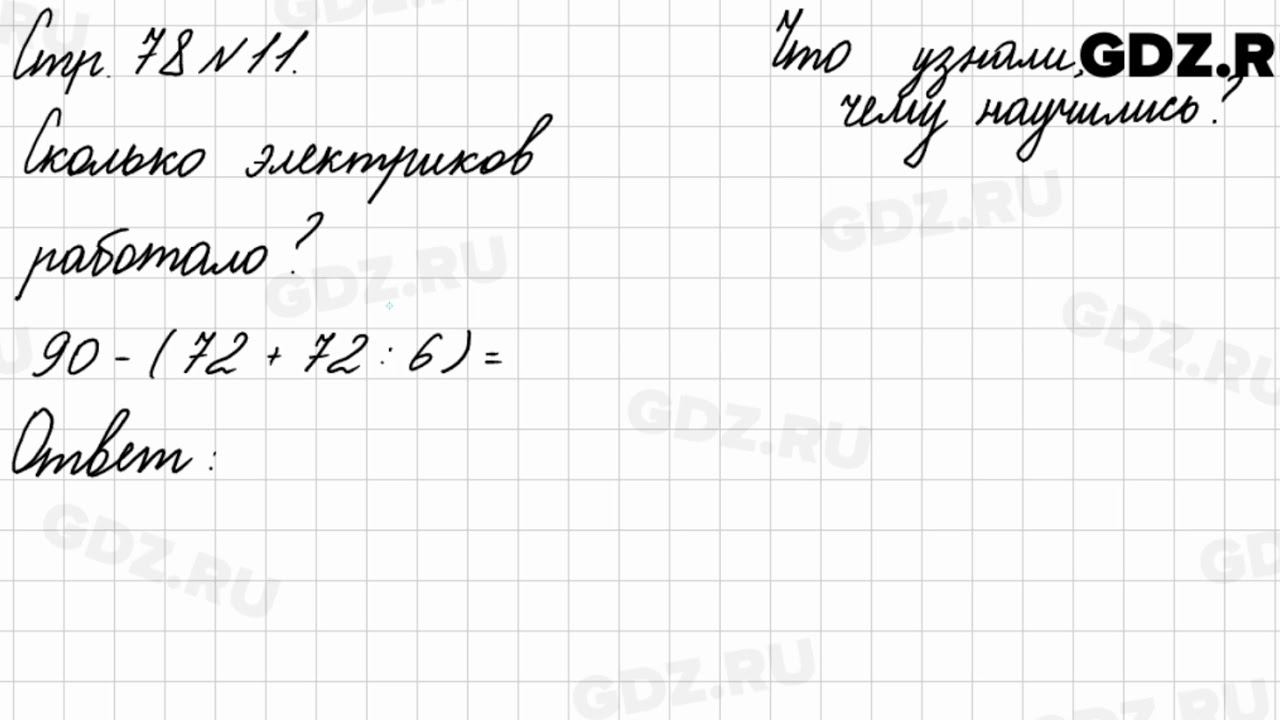 Стр. 78 N 11.
Что узнали,
чему научились?
GDZ.R
Сколько электриков
работало?
90 - (72 + 72 : 6) =
Ответ:
GDZ.RU
GDZ.RU
GDZ.RU
GDZ.RU
GDZ.RU
GDZ.RU